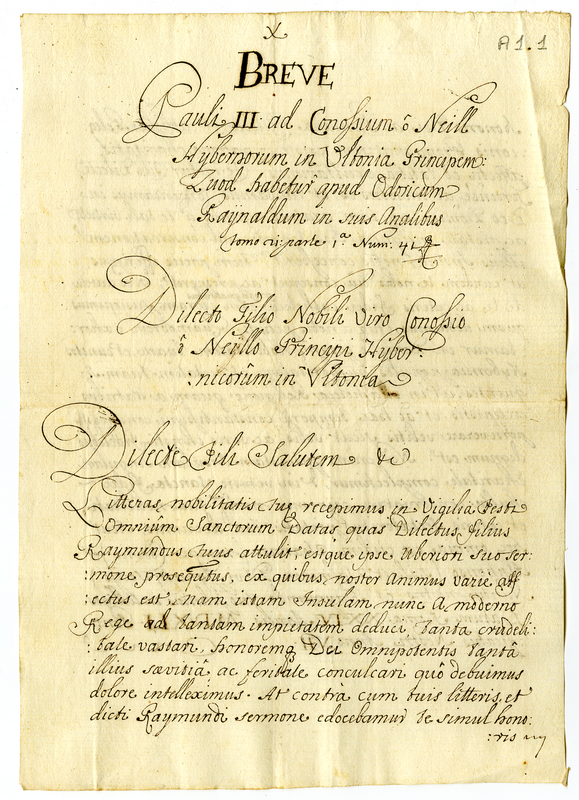 A1.1
X
BREVE
Pauli III ad Conossium ô Neill
Hybernorum in Ultonia Principem:
Quod habetur apud Odoricum
Raynaldum in suis Analibus
tomo 21 parte 1.ª Num: 41
Dilecto Filio Nobili Viro Conossio
ô Neillo Principi Hyber:
:nicorûm in Ultonia
Dilecte Fili Salutem &c
Litteras nobilitatis tuę recepimus in Vigilia Festi
Omnium Sanctorum Datas quas Dilectus Filius
Raymundus tuus attulit, estque ipse Uberiori suo ser
:mone prosequtus, ex quibus noster Animus varie aff
:ectus est, nam istam Insulam nunc A moderno
Rege ad tantam impietatem deduci, tanta crudeli:
:tate vastari, honoremq Dei Omnipotentis tantâ
illius sævitiâ ac feritate conculcari quô debuimus
dolore intelleximus. At contra cum tuis litteris et
dicti Raymundi sermone edocebamur te simul hono:
:ris